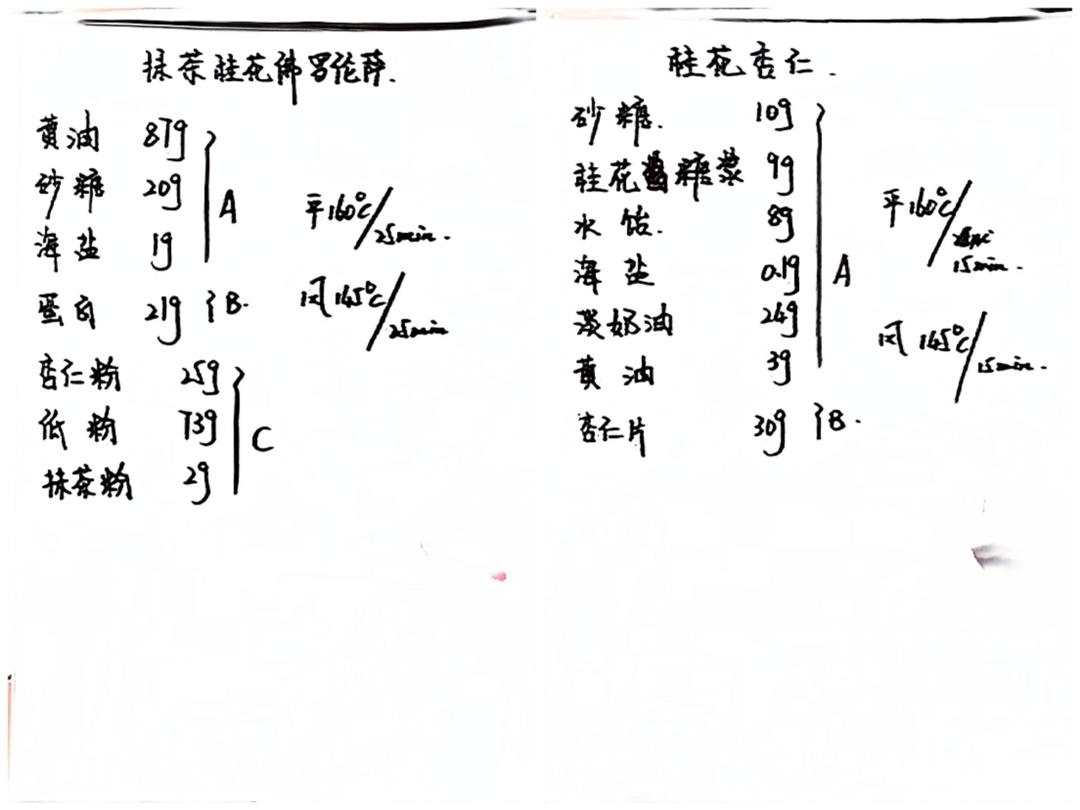 抹茶桂花佛罗伦萨.
黄油 87g
砂糖 20g
海盐 1g
A
蛋白 21g }B.
杏仁粉 25g
低粉 73g
抹茶粉 2g
C
平160℃/25min.
风145℃/25min
桂花杏仁.
砂糖. 10g
桂花糖浆 9g
水饴. 8g
海盐 0.1g
淡奶油 24g
黄油 3g
A
杏仁片 30g }B.
平160℃/15min.
风145℃/15min.